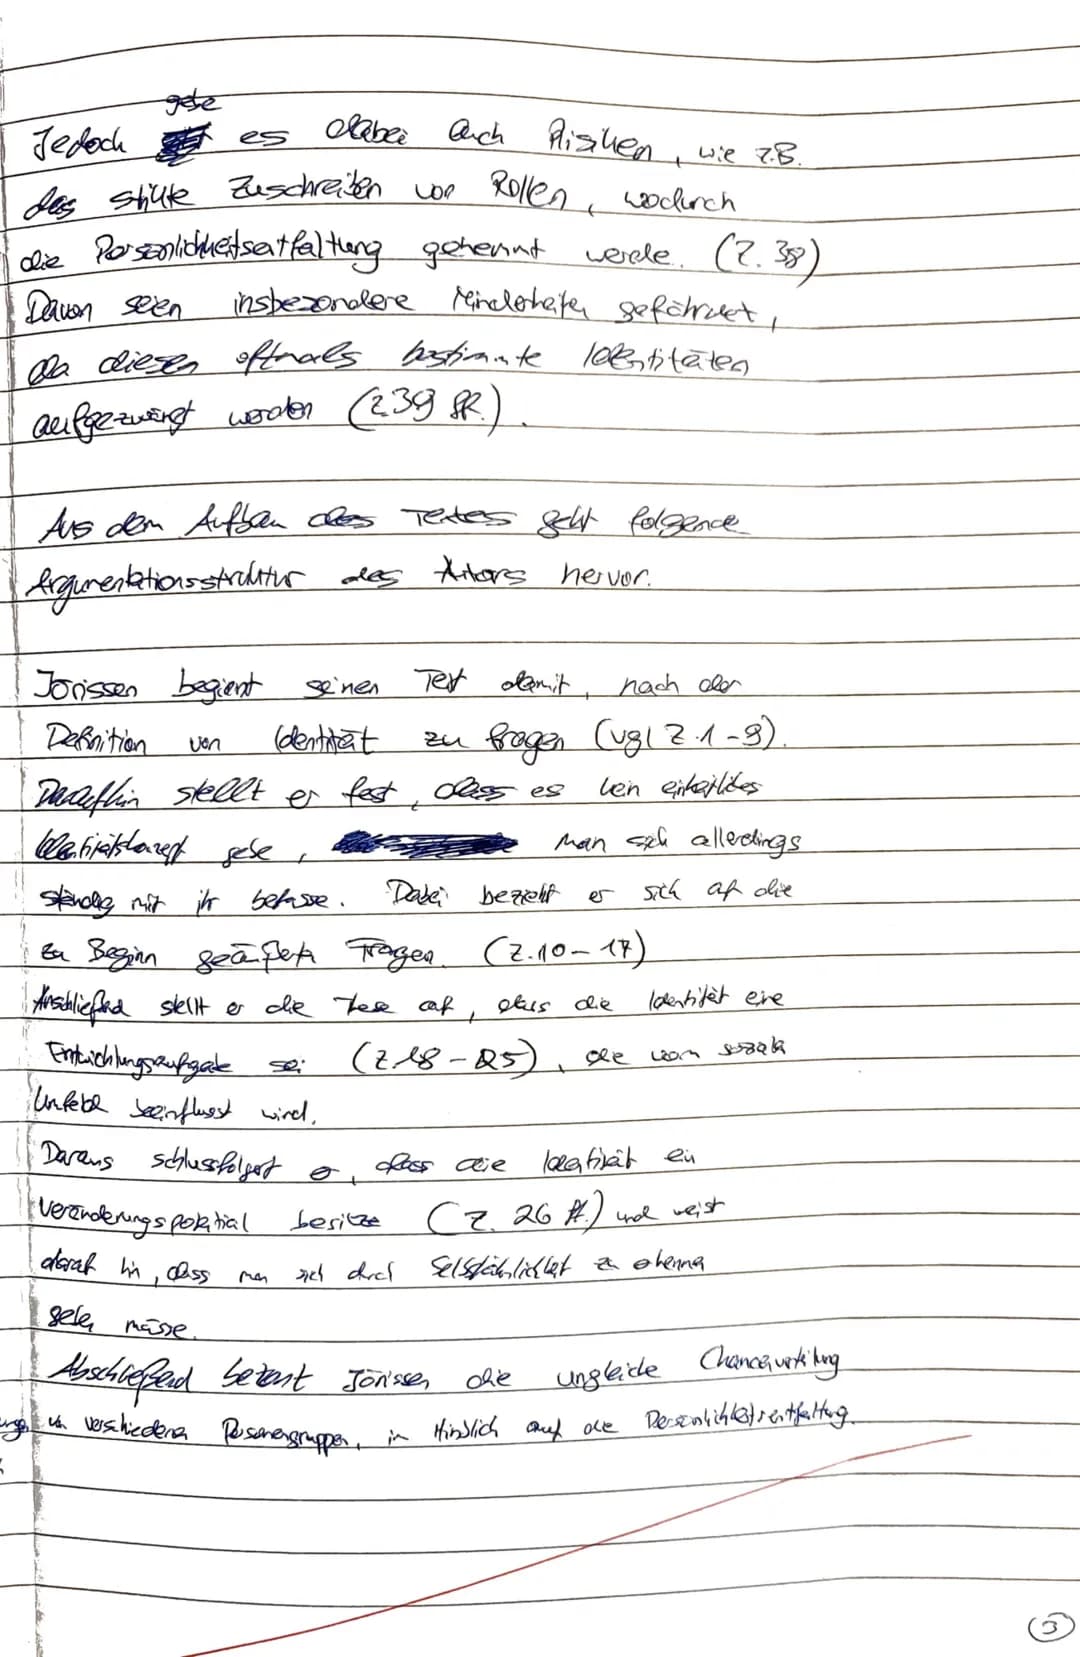 gebe
Jedoch es dabei auch Risiken, wie z.B.
das stille Zuschreiben von Rollen, wodurch
die Persönlichkeitsentfaltung gehemmt werde. (Z. 38)
Davon seien insbesondere Minderheiten gefährdet,
da diesen oftmals bestimmte Identitäten
aufgezwängt werden (Z.39 ff.).
Aus dem Aufbau des Textes geht folgende
Argumentationsstruktur des Autors hervor.
Jörissen beginnt seinen Text damit, nach der
Definition von Identität zu fragen (vgl Z.1-9).
Daraufhin stellt er fest, dass es kein einheitliches
Identitätskonzept gebe, man sich allerdings
ständig mit ihr befasse. Dabei bezieht er sich auf die
zu Beginn geäußerten Fragen. (Z.10-17)
Anschließend stellt er die These auf, dass die Identität eine
Entwicklungsaufgabe sei (Z.18-25), die vom soziale
Umfeld beeinflusst wird.
Daraus schlussfolgert er, dass die Identität ein
Veränderungspotential besitze (Z. 26 ff.) und weist
darauf hin, dass man sich durch Selbstähnlichkeit zu erkennen
geben müsse.
Abschließend betont Jörissen die ungleiche Chancenverteilung
von verschiedenen Personengruppen, in Hinblich auf die Persönlichkeitsentfaltung.
3